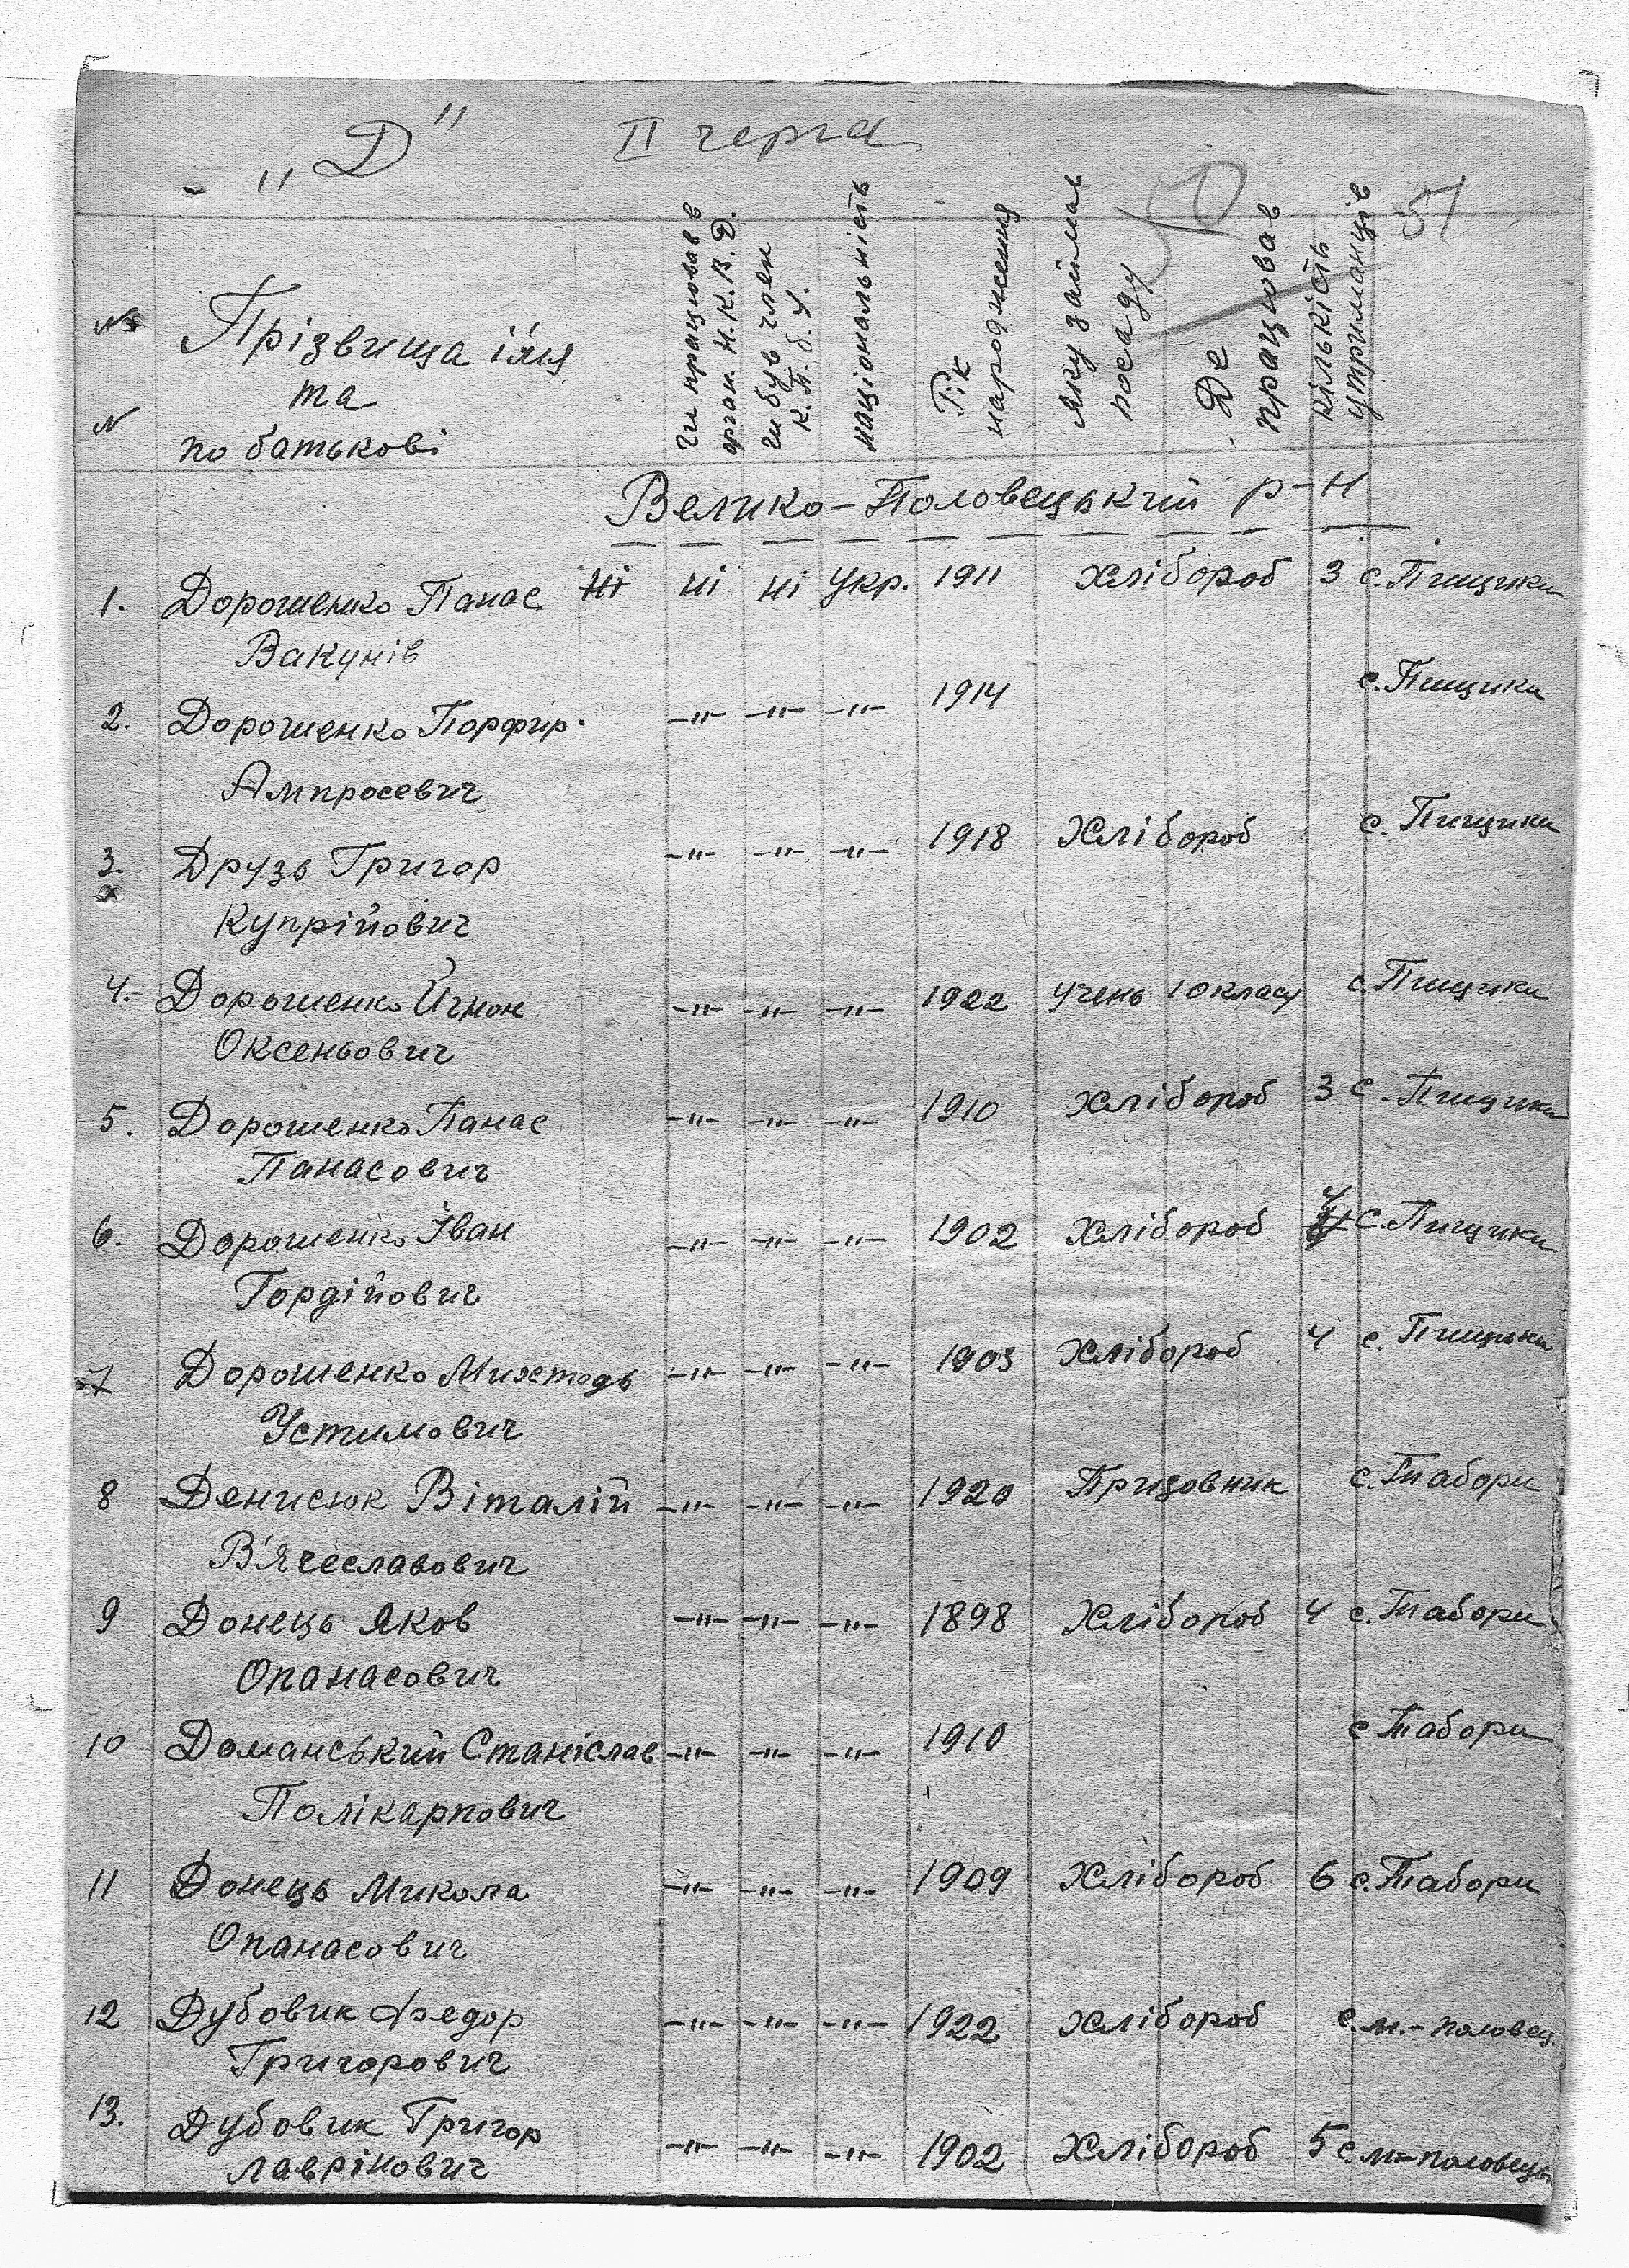 „Д" II черга
51
№ N
Прізвища ім'я
та
по батькові
Чи працював в
орган. Н.К.В.Д.
чи був член
К.П.б.У.
національність
Рік
народження
яку займав
посаду
Де
працював
кількість
утриманців
Велико-Половецький р-н
1. Дорошенко Панас ні ні ні укр. 1911 хлібороб 3 с. Пищики
Вакунів
2. Дорошенко Порфир. -"- -"- -"- 1914 с. Пищики
Ампросевич
3. Друзь Григор -"- -"- -"- 1918 хлібороб с. Пищики
Купрійович
4. Дорошенко -"- -"- -"- 1922 учень 10 класу с. Пищики
Оксеньович
5. Дорошенко Панас -"- -"- -"- 1910 хлібороб 3 с. Пищики
Панасович
6. Дорошенко Іван -"- -"- -"- 1902 хлібороб 4 с. Пищики
Гордійович
7 Дорошенко Михтодь -"- -"- -"- 1903 хлібороб 4 с. Пищики
Устимович
8 Денисюк Віталій -"- -"- -"- 1920 Прицовник с. Табори
В'ячеславович
9 Донець Яков -"- -"- -"- 1898 хлібороб 4 с. Табори
Опанасович
10 Доманський Станіслав -"- -"- -"- 1910 с. Табори
Полікарпович
11 Донець Микола -"- -"- -"- 1909 хлібороб 6 с. Табори
Опанасович
12 Дубовик Федор -"- -"- -"- 1922 хлібороб с. м.-половец.
Григорович
13. Дубовик Григор -"- -"- -"- 1902 хлібороб 5 с. м-половецьк
Лаврінович